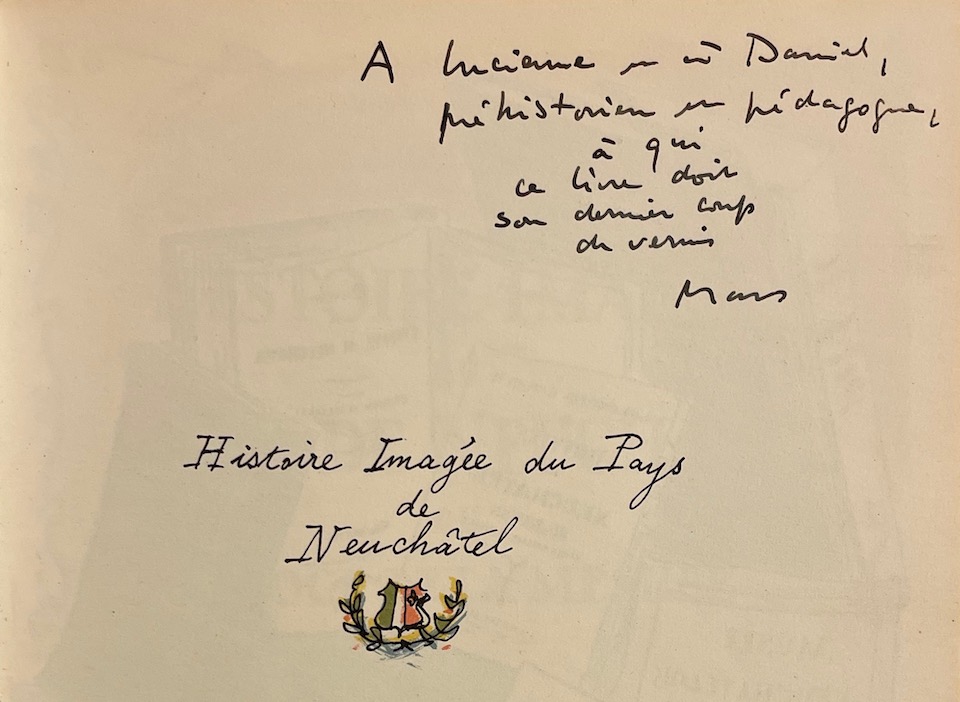 A Lucienne et à Daniel,
préhistorien et pédagogue,
à qui
ce livre doit
son dernier coup
de vernis
Histoire Imagée du Pays
de
Neuchâtel